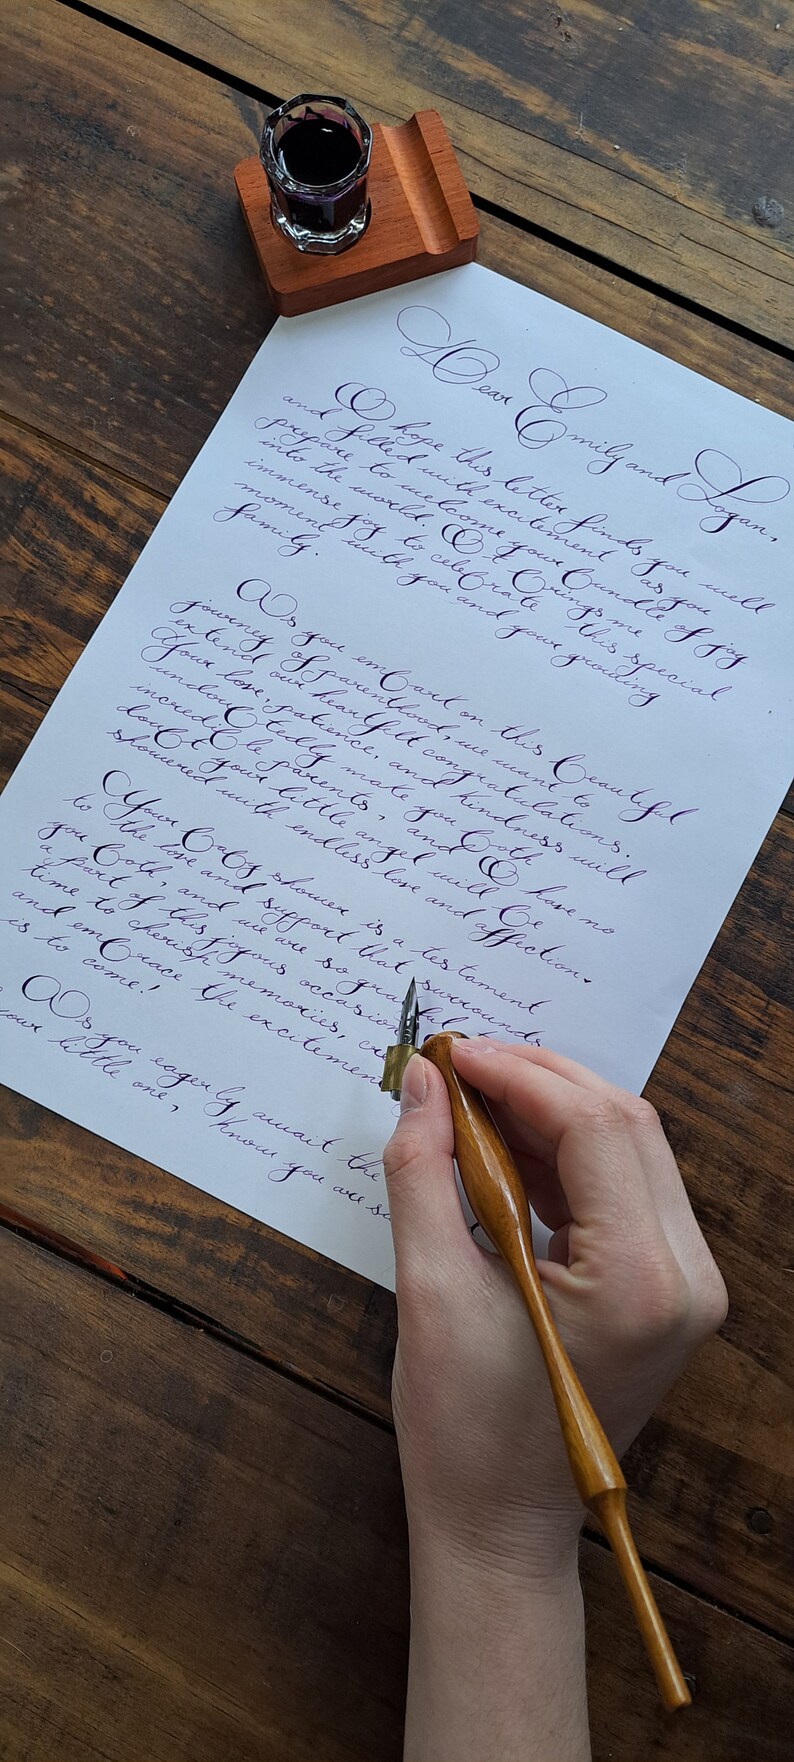 Dear Emily and Logan,
I hope this letter finds you well
and filled with excitement as you
prepare to welcome your bundle of joy
into the world. It brings me
immense joy to celebrate this special
moment with you and your growing
family.
As you embark on this beautiful
journey of parenthood, we want to
extend our heartfelt congratulations.
Your love, patience, and kindness will
undoubtedly make you both
incredible parents, and I have no
doubt your little angel will be
showered with endless love and affection.
Your baby shower is a testament
to the love and support that surrounds
you both, and we are so grateful
a part of this joyous occasion
time to cherish memories,
and embrace the excitement
is to come!
As you eagerly await the
your little one, know you are